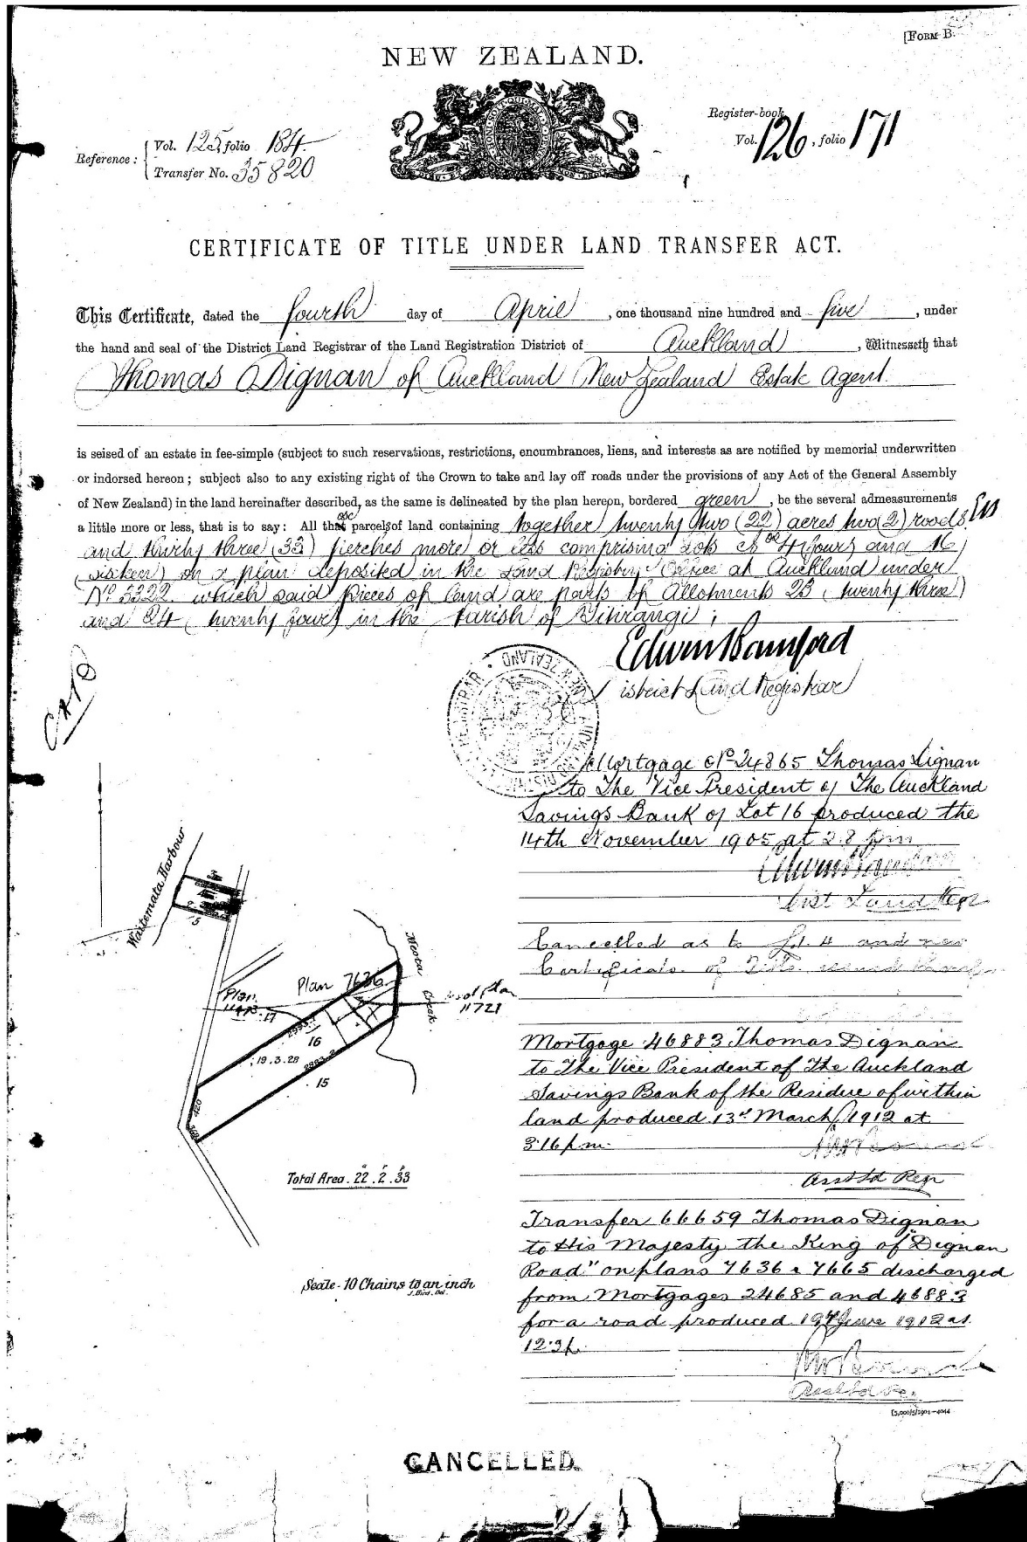 [FORM B.
NEW ZEALAND.
Reference :
Vol. 125, folio 184
Transfer No. 35820
Register-book
Vol. 126, folio 171
CERTIFICATE OF TITLE UNDER LAND TRANSFER ACT.
This Certificate, dated the fourth day of April, one thousand nine hundred and five, under
the hand and seal of the District Land Registrar of the Land Registration District of Auckland, Witnesseth that
Thomas Dignan of Auckland New Zealand Estate Agent
is seised of an estate in fee-simple (subject to such reservations, restrictions, encumbrances, liens, and interests as are notified by memorial underwritten
or indorsed hereon; subject also to any existing right of the Crown to take and lay off roads under the provisions of any Act of the General Assembly
of New Zealand) in the land hereinafter described, as the same is delineated by the plan hereon, bordered green, be the several admeasurements
a little more or less, that is to say: All parcels of land containing together twenty two (22) acres two (2) roods
and thirty three (33) perches more or less comprising Lots 4 (four) and 16
(sixteen) on a plan deposited in the Land Registry Office at Auckland under
No 3322 which said pieces of land are parts of Allotments 23 (twenty three)
and 24 (twenty four) in the Parish of Titirangi;
Edwin Bamford
District Land Registrar
Mortgage No 24865 Thomas Dignan
to The Vice President of The Auckland
Savings Bank of Lot 16 produced the
14th November 1905 at 2.8 pm
Edwin Bamford
Dist Land Regr
Cancelled as to Lot 4 and new
Certificate of Title issued
Mortgage 46883 Thomas Dignan
to The Vice President of The Auckland
Savings Bank of the Residue of within
land produced 13th March 1912 at
3.16 pm
Asst Ld Regr
Transfer 66659 Thomas Dignan
to His Majesty the King of "Dignan
Road" on plans 7636 & 7665 discharged
from Mortgages 24685 and 46883
for a road produced 19th June 1912 at
12.3
Waitemata Harbour
5
Plan 7636
Meola Creek
Plan
17
plan
11721
16
19.3.28
15
420
Total Area . 22 . 2 . 33
Scale - 10 Chains to an inch
CANCELLED.